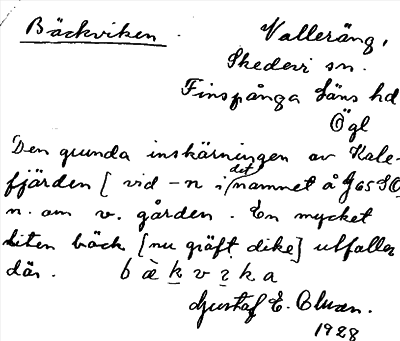 Bäckviken. Valleräng,
Skedevi sn.
Finspånga Läns hd
Ögl
Den grunda inskärningen av Kale-
fjärden [vid -n i det namnet å J 65 SO,
n. om v. gården. En mycket
liten bäck [nu gräft dike] utfaller
där. b ὰ k v ɿ k a
Gustaf E. Clван.
1928